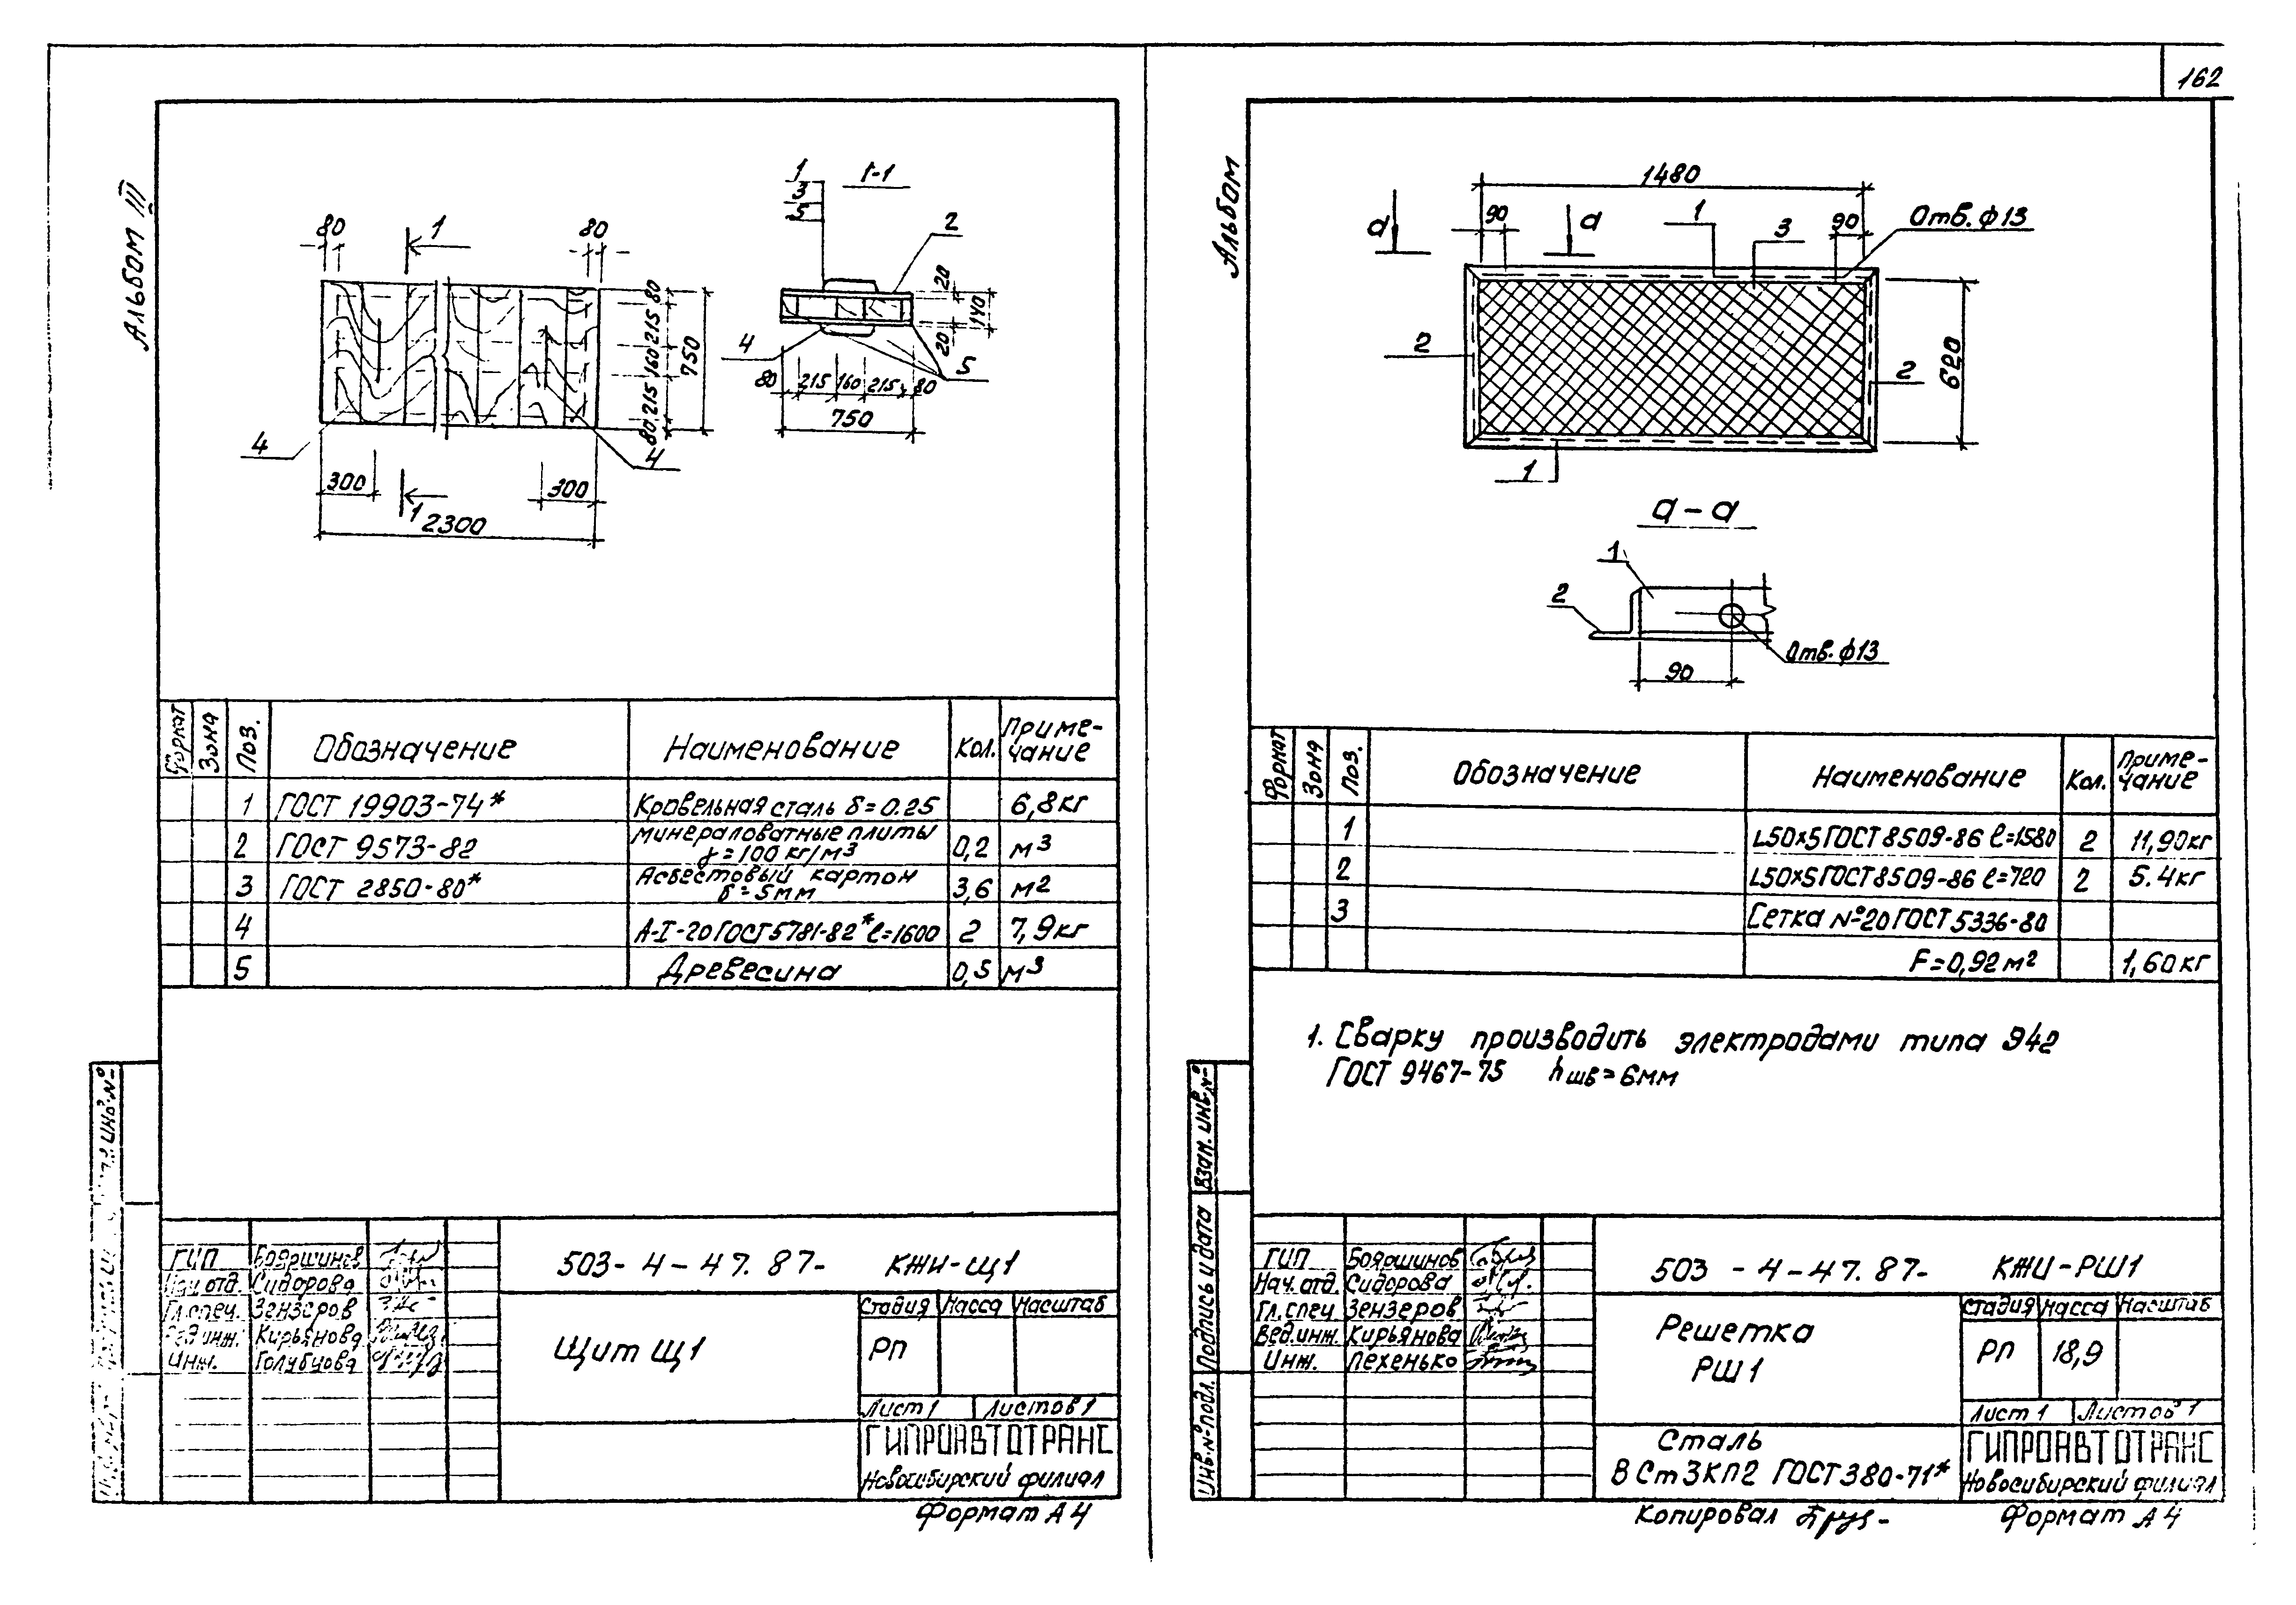 162
Альбом III
80
1
80
80
215
160
215
80
750
4
4
300
300
1
2300
1
3
5
1-1
2
20
140
20
4
5
80 215 160 215 80
750
Формат Зона Поз. Обозначение Наименование Кол. Приме-
чание
1 ГОСТ 19903-74* Кровельная сталь δ=0.25 6,8кг
2 ГОСТ 9573-82 Минераловатные плиты γ=100 кг/м3 0,2 м3
3 ГОСТ 2850-80* Асбестовый картон δ=5мм 3,6 м2
4 А-I-20 ГОСТ 5781-82* ℓ=1600 2 7,9кг
5 Древесина 0,5 м3
инв.№
ГИП Бояршинов
Нач.отд. Сидорова
Гл.спец. Зензеров
Вед.инж. Кирьянова
Инж. Голубцова
503-4-47.87- КЖИ-Щ1
Щит Щ1
Стадия Масса Масштаб
РП
Лист 1 Листов 1
ГИПРОАВТОТРАНС
Новосибирский филиал
Формат А4
Альбом
1480
а
90
а
1
3
90
Отв. ф13
2
2
620
1
а-а
1
2
90
Отв. ф13
Формат Зона Поз. Обозначение Наименование Кол. Приме-
чание
1 L50×5 ГОСТ 8509-86 ℓ=1580 2 11,90кг
2 L50×5 ГОСТ 8509-86 ℓ=720 2 5.4кг
3 Сетка №20 ГОСТ 5336-80
F=0,92 м2 1,60кг
1. Сварку производить электродами типа Э42
ГОСТ 9467-75 hшв=6мм
Инв.№подл. Подпись и дата Взам. инв.№
ГИП Бояршинов
Нач.отд. Сидорова
Гл.спец. Зензеров
Вед.инж. Кирьянова
Инж. Пехенько
503-4-47.87- КЖИ-РШ1
Решетка
РШ1
Стадия Масса Масштаб
РП 18,9
Лист 1 Листов 1
Сталь
ВСт3КП2 ГОСТ 380-71*
ГИПРОАВТОТРАНС
Новосибирский филиал
Копировал
Формат А4